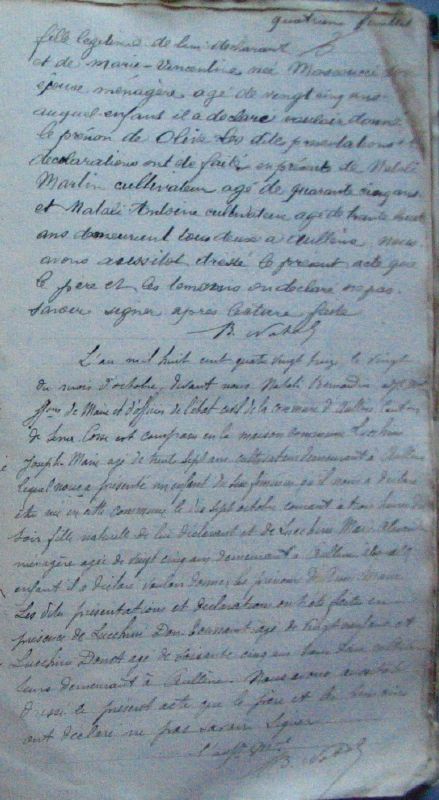 quatrième feuillet
fille légitime de lui déclarant
et de Marie-Vincentine née son
épouse ménagère agé de vingt cinq ans
auquel enfant il a déclaré vouloir donné
le prénon de Olive Les dites presentations et
declarations ont de faite en présents de Natali
Martin cultivateur agé de quarante cinq ans
et Natali Antoine cultivateur agé de trente
ans demeurient tous deux a Aullène nous
avons aussitot dressé le présent acte que
le pere et les temoins on declaré ne pas
savoir signer apres lecture faite
B. Natali
L'an mil huit cent quatre vingt le vingt
du mois d'octobre, devant nous Natali Bernardin
de Maire et d'officier de l'état civil de la commune d'Aullène Canton
de Serra Corse est comparu en la maison commune Lucchini
Joseph Marie agé de trente sept ans cultivateur demeurant à Aullène
lequel nous a présenté un enfant de sexe feminin qu'il nous a déclaré
être née en cette commune le dix sept octobre courant à trois heures du
soir fille naturelle de lui déclarant et de Lucchini Marie
ménagère agée de vingt cinq ans demeurant à Aullène
enfant il a déclaré vouloir donner les prénoms de Marie
Les dites presentations et déclarations ont été faites en
presence de Lucchini Don agé de et
Lucchini agé de soixante cinq ans tous deux cultiva
teurs demeurant à Aullène. Nous avons aussitot
dressé le present acte que le père et les temoins
ont déclaré ne pas savoir signer
B. Natali